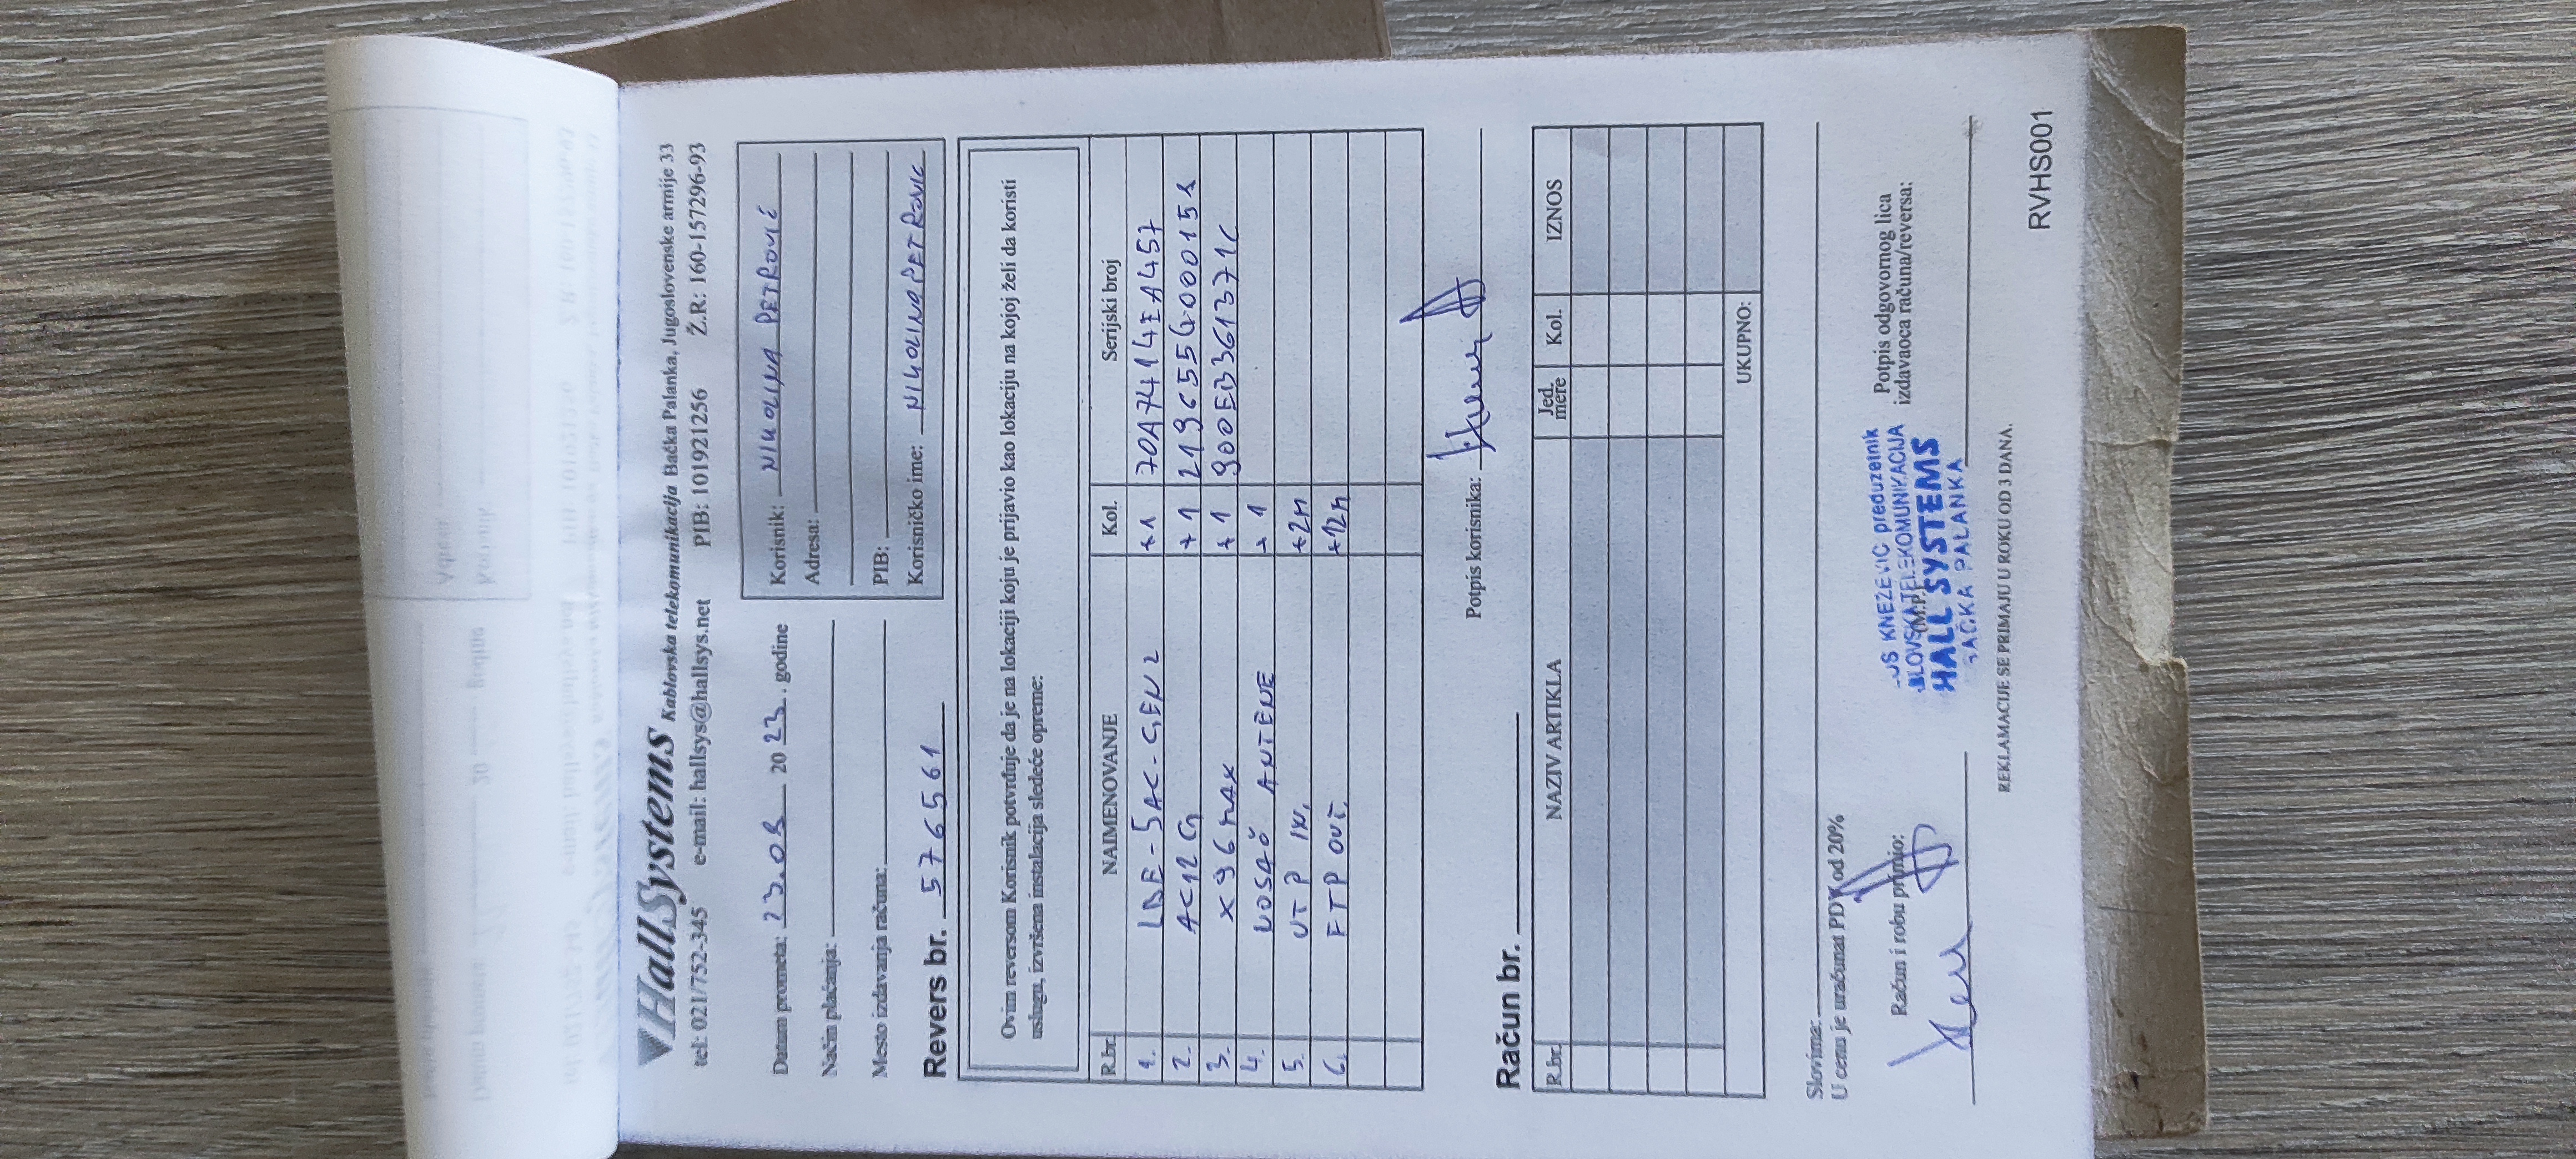 HallSystems Kablovska telekomunikacija Bačka Palanka, Jugoslovenske armije 33
tel: 021/752-345 e-mail: hallsys@hallsys.net PIB: 101921256 Ž.R: 160-157296-93
Datum prometa: 23.08 20 23. godine
Način plaćanja:
Mesto izdavanja računa:
Korisnik: NIKOLINA PETROVIĆ
Adresa:
PIB:
Korisničko ime: NIKOLINAPETROVIC
Revers br. 576561
Ovim reversom Korisnik potvrđuje da je na lokaciji koju je prijavio kao lokaciju na kojoj želi da koristi
uslugu, izvršena instalacija sledeće opreme:
R.br. NAIMENOVANJE Kol. Serijski broj
1. LBE-5AC-GEN2 +1 70A7414EA457
2. AC12G +1 219655G000151
3. X96MAX +1 900EB361371C
4. NOSAČ ANTENE +1
5. UTP IN. +2m
6. FTP OUT. +12m
Potpis korisnika:
Račun br.
R.br. NAZIV ARTIKLA Jed. mere Kol. IZNOS
UKUPNO:
Slovima:
U cenu je uračunat PDV od 20%
Račun i robu primio:
(M.P.)
KNEŽEVIĆ preduzetnik
TELEKOMUNIKACIJA
HALL SYSTEMS
BAČKA PALANKA
Potpis odgovornog lica
izdavaoca računa/reversa:
REKLAMACIJE SE PRIMAJU U ROKU OD 3 DANA.
RVHS001